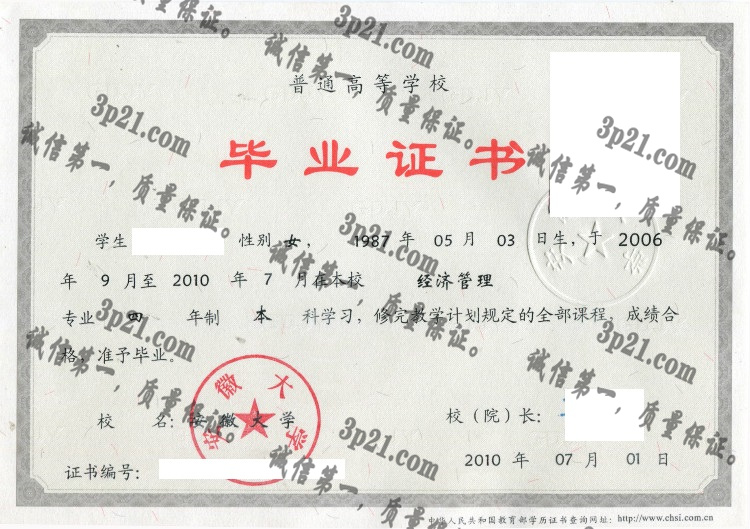 普通高等学校
毕业证书
学生 性别 女， 1987 年 05 月 03 日生，于 2006
年 9 月至 2010 年 7 月在本校 经济管理
专业 四 年制 本 科学习，修完教学计划规定的全部课程，成绩合
格，准予毕业。
校 名：安徽大学 校（院）长：
证书编号： 2010 年 07 月 01 日
中华人民共和国教育部学历证书查询网址：http://www.chsi.com.cn
安徽大学
质量保证。
3p21.com
诚信第一，质量保证。
3p21.com
诚信第一，质量保证。
3p21.com
诚信第一，质量保证。
3p21.com
诚信第一，质量保证。
3p21.com
诚信第一，质量保证。
3p21.com
诚信第一，质量保证。
3p21.com
诚信第一，质量保证。